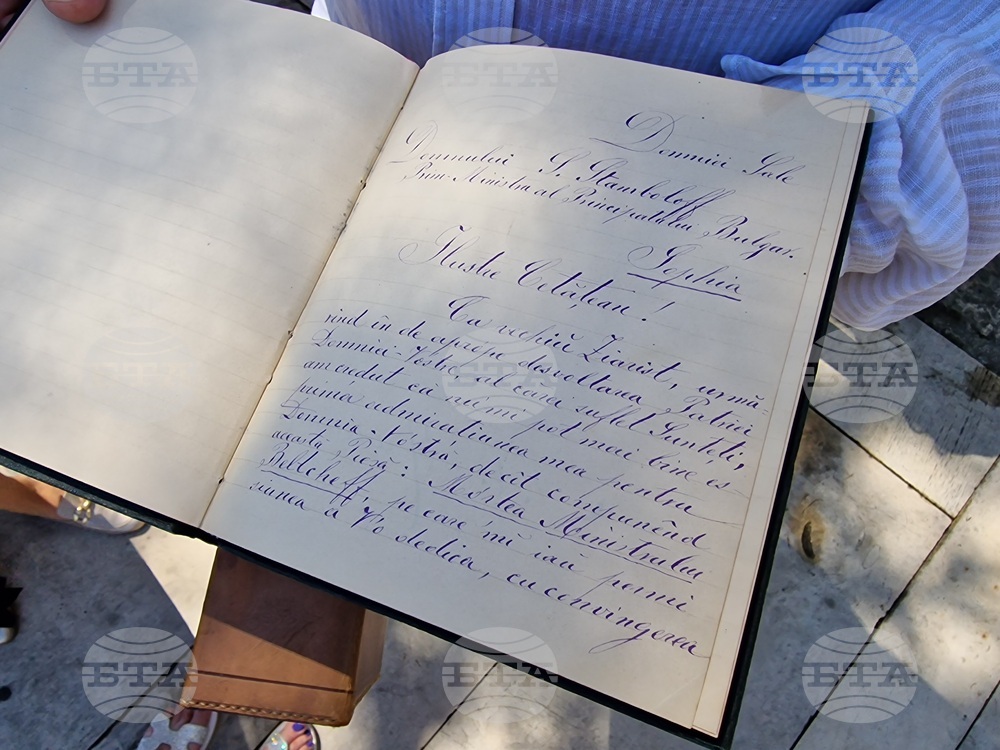 Domniei Sale
Domnului S. Stamboloff
Prim-Ministru al Principatului Bulgar.
Sophia
Ilustre Cetățean!
Ca vechiŭ Ziarist, urmă-
rind în de aprópe desvoltarea Patriei
Domniei-Vóstre, al cărei suflet Sunteți,
am credut că nu'mi pot mai bine es-
prima admirațiunea mea pentru
Domnia-Vóstră, decât compunênd
acéstă Piesă: Mórtea Ministrului
Beltcheff, pe care 'mĭ iaŭ permi
siunea a V'o dedica, cu convingerea
БТА
БТА
БТА
БТА
БТА
БТА
БТА
БТА
БТА